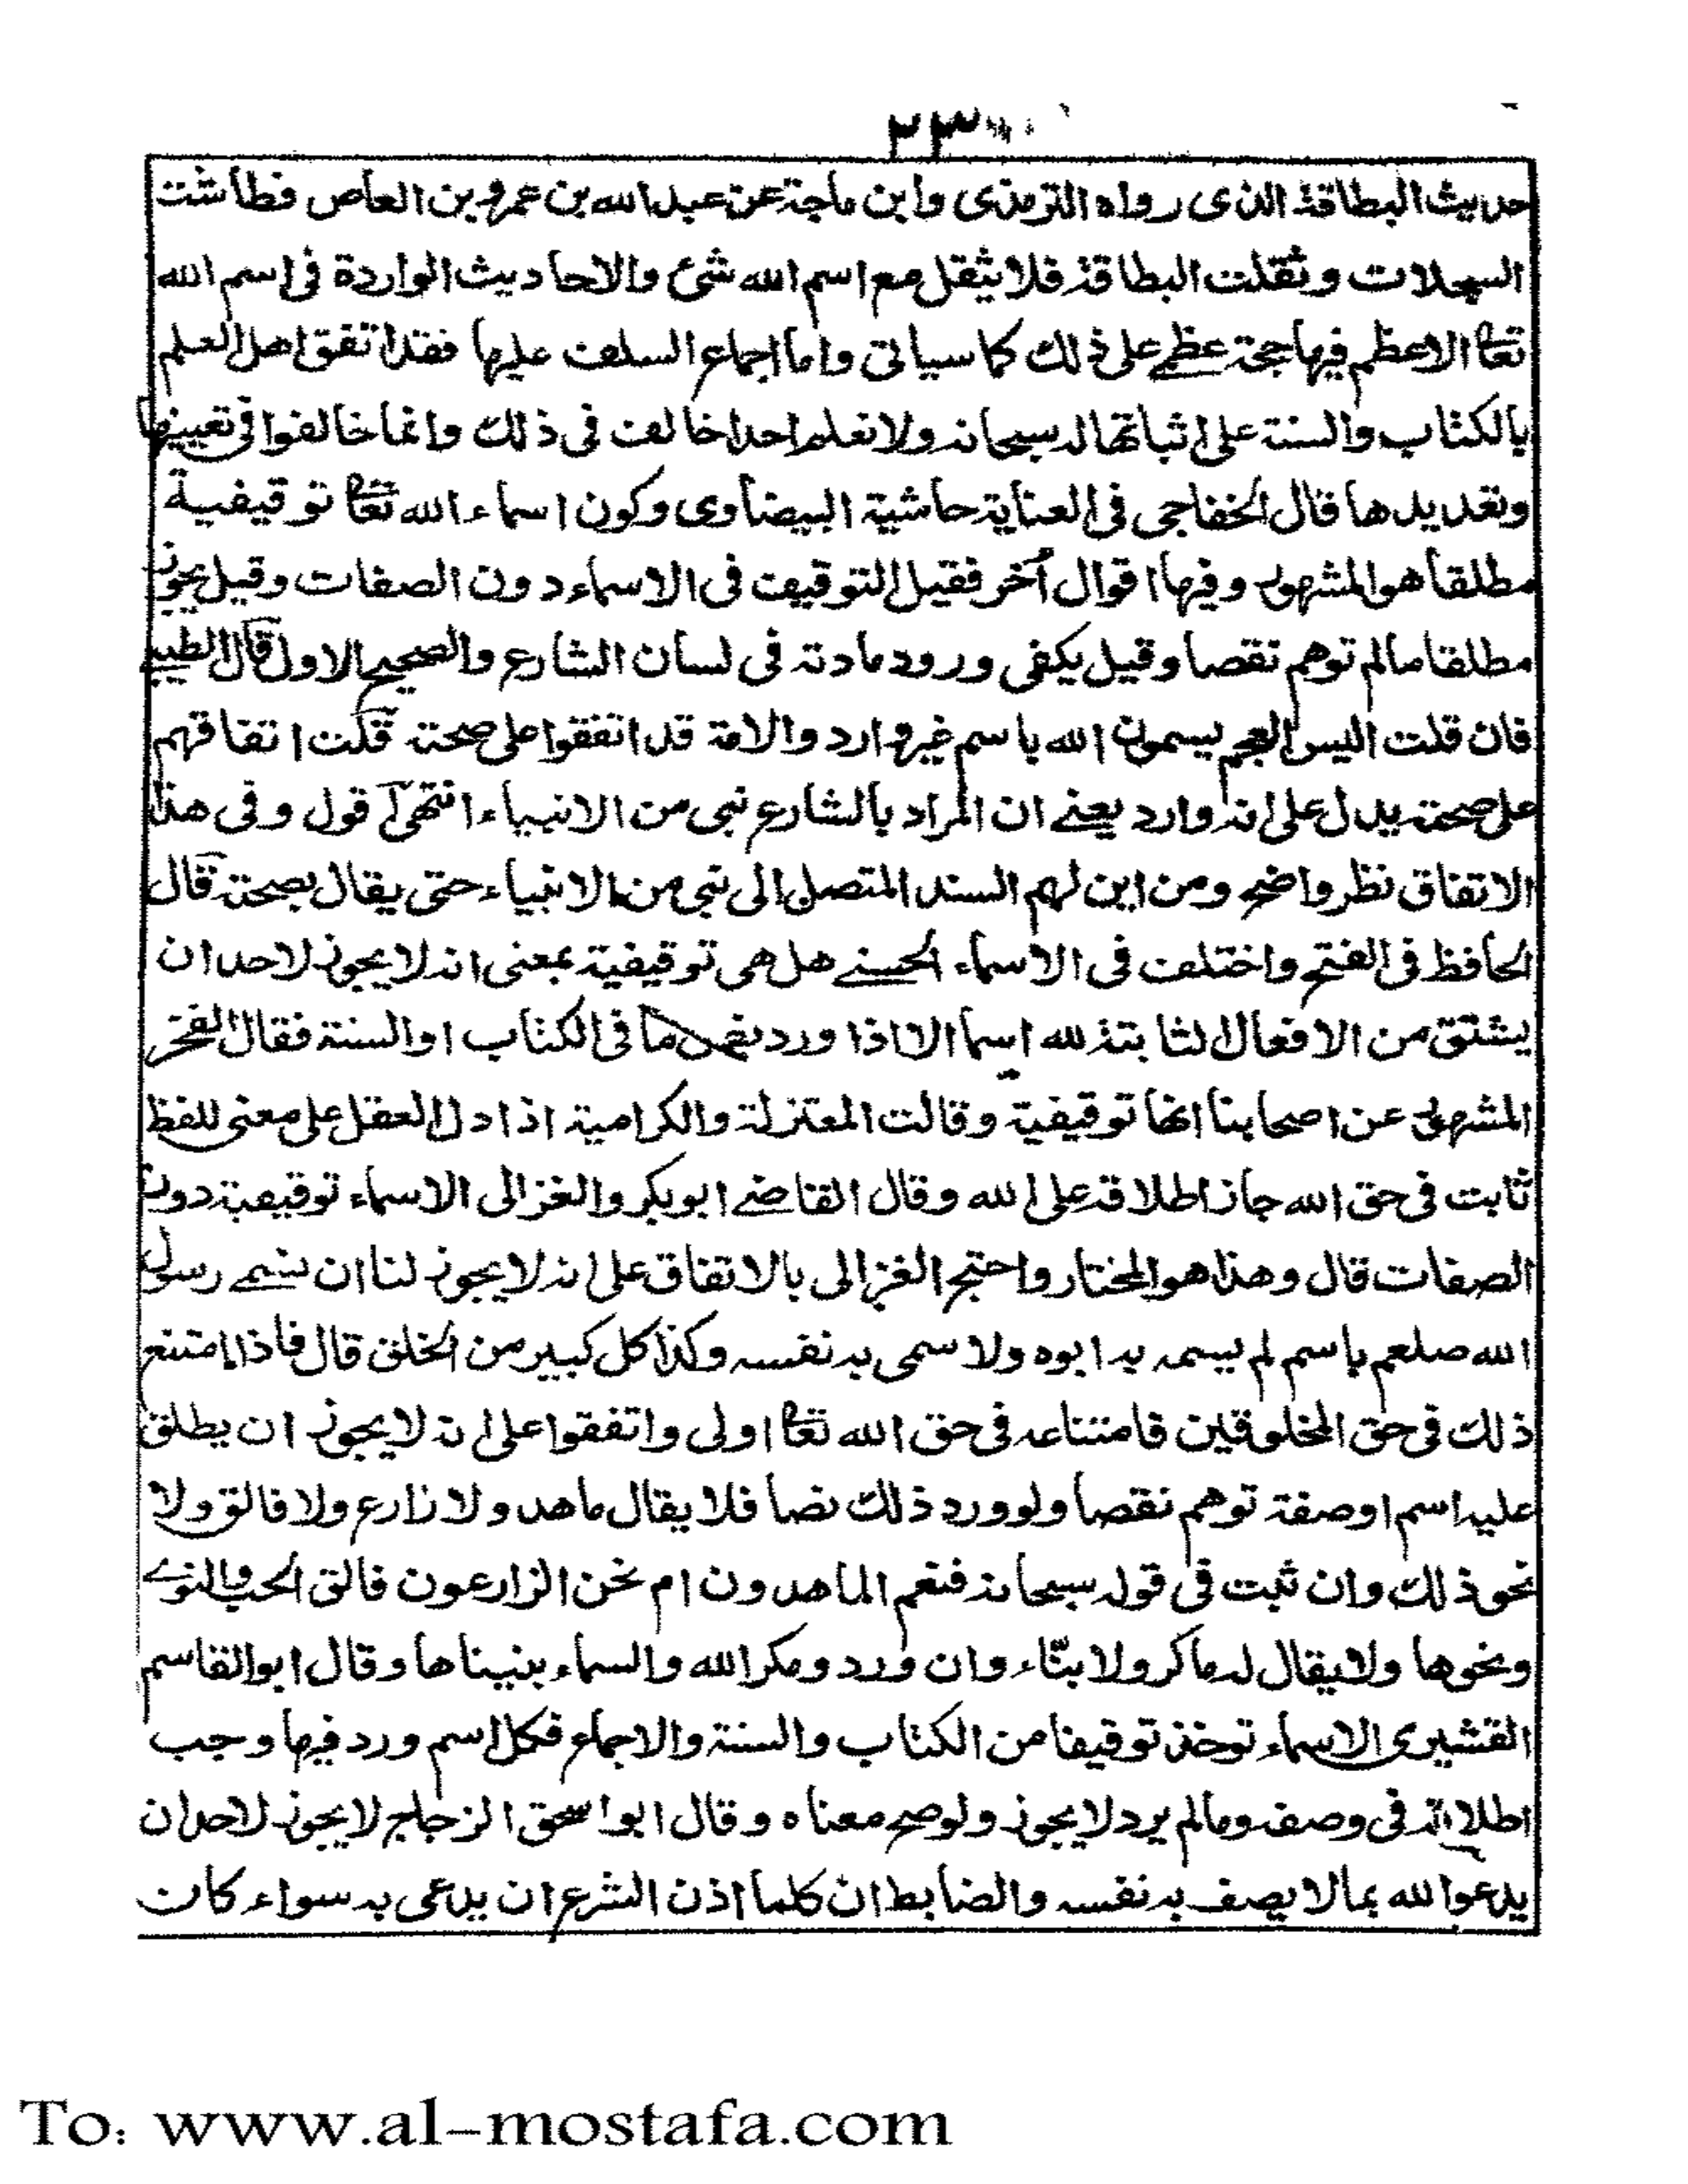 ٢٣
حديث البطاقة الذى رواه الترمذى وابن ماجة عن عبد الله بن عمرو بن العاص فطاشت
السجلات وثقلت البطاقة فلا يثقل مع اسم الله شئ والاحاديث الواردة فى اسم الله
تعا الاعظم فيها حجة عظمے على ذلك كما سياتى واما اجماع السلف عليها فقد اتفق اهل العلم
بالكتاب والسنة على اثباتها له سبحانه ولا نعلم احدا خالف فى ذلك وانما خالفوا فى تعيينها
وتعديدها قال الخفاجى فى العناية حاشية البيضاوى وكون اسماء الله تعا توقيفية
مطلقا هو المشهور وفيها اقوال أخر فقيل التوقيف فى الاسماء دون الصفات وقيل يجوز
مطلقا مالم توهم نقصا وقيل يكفى ورود مادته فى لسان الشارع والصحيح الاول قال الطيبے
فان قلت اليس العجم يسمون الله باسم غير وارد والامة قد اتفقوا على صحته قلت اتفاقهم
على صحته يدل على انه وارد يعنے ان المراد بالشارع نبى من الانبياء انتهى أقول وفى هذا
الاتفاق نظر واضح ومن اين لهم السند المتصل الى نبى من الانبياء حتى يقال بصحته قال
الحافظ فى الفتح واختلف فى الاسماء الحسنے هل هى توقيفية بمعنى انه لا يجوز لاحد ان
يشتق من الافعال الثابتة لله اسما الا اذا ورد نص ما فى الكتاب او السنة فقال الفخر
المشهور عن اصحابنا انها توقيفية وقالت المعتزلة والكرامية اذا دل العقل على معنى للفظ
ثابت فى حق الله جاز اطلاقه على الله وقال القاضے ابوبكر والغزالى الاسماء توقيفية دون
الصفات قال وهذا هو المختار واحتج الغزالى بالاتفاق على انه لا يجوز لنا ان نسمے رسول
الله صلعم باسم لم يسمه به ابوه ولا سمى به نفسه وكذا كل كبير من الخلق قال فاذا امتنع
ذلك فى حق المخلوقين فامتناعه فى حق الله تعا اولى واتفقوا على انه لا يجوز ان يطلق
عليه اسم اوصفة توهم نقصا ولو ورد ذلك نصا فلا يقال ماهد ولا زارع ولا فالق ولا
نحو ذلك وان ثبت فى قوله سبحانه فنعم الماهدون ام نحن الزارعون فالق الحب والنوے
ونحوها ولا يقال له ماكر ولا بنّاء وان ورد ومكر الله والسماء بنيناها وقال ابو القاسم
القشيرى الاسماء توخذ توقيفا من الكتاب والسنة والاجماع فكل اسم ورد فيها وجب
اطلاقه فى وصفه ومالم يرد لا يجوز ولو صح معناه وقال ابواسحق الزجاج لا يجوز لاحد ان
يدعوا لله بما لا يصف به نفسه والضابط ان كلما اذن الشرع ان يدعى به سواء كان
To: www.al-mostafa.com